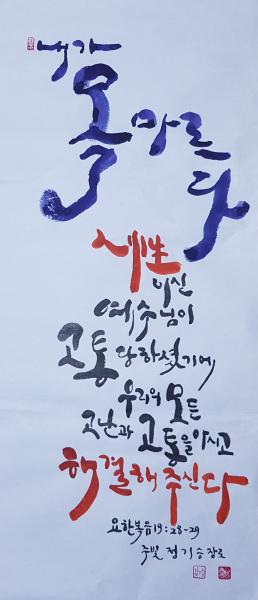 내가
목마르다
이신
예수님이
고통 당하셨기에
우리의 모든
고난과 고통을 아시고
해결해 주신다
요한복음19:28-29
주빛 정기승장로